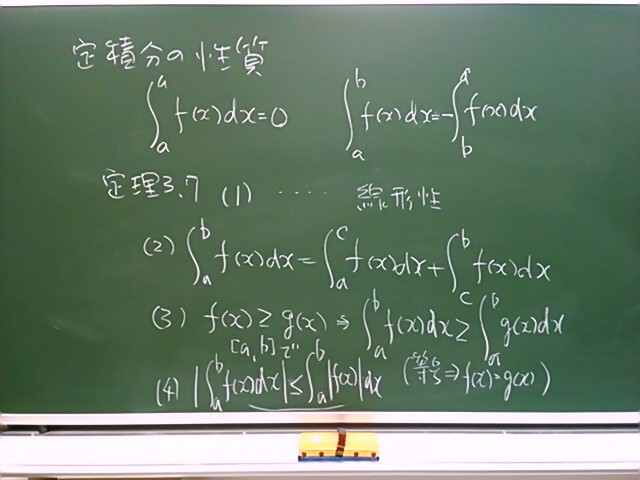 定積分の性質
∫_a^a f(x)dx=0 ∫_a^b f(x)dx=-∫_b^a f(x)dx
定理3.7 (1) ‥‥ 線形性
(2) ∫_a^b f(x)dx=∫_a^c f(x)dx+∫_c^b f(x)dx
(3) f(x)≥g(x) ⇒ ∫_a^b f(x)dx≥∫_a^b g(x)dx
[a,b]で
(4) |∫_a^b f(x)dx|≤∫_a^b|f(x)|dx (等号⇒f(x)=g(x))